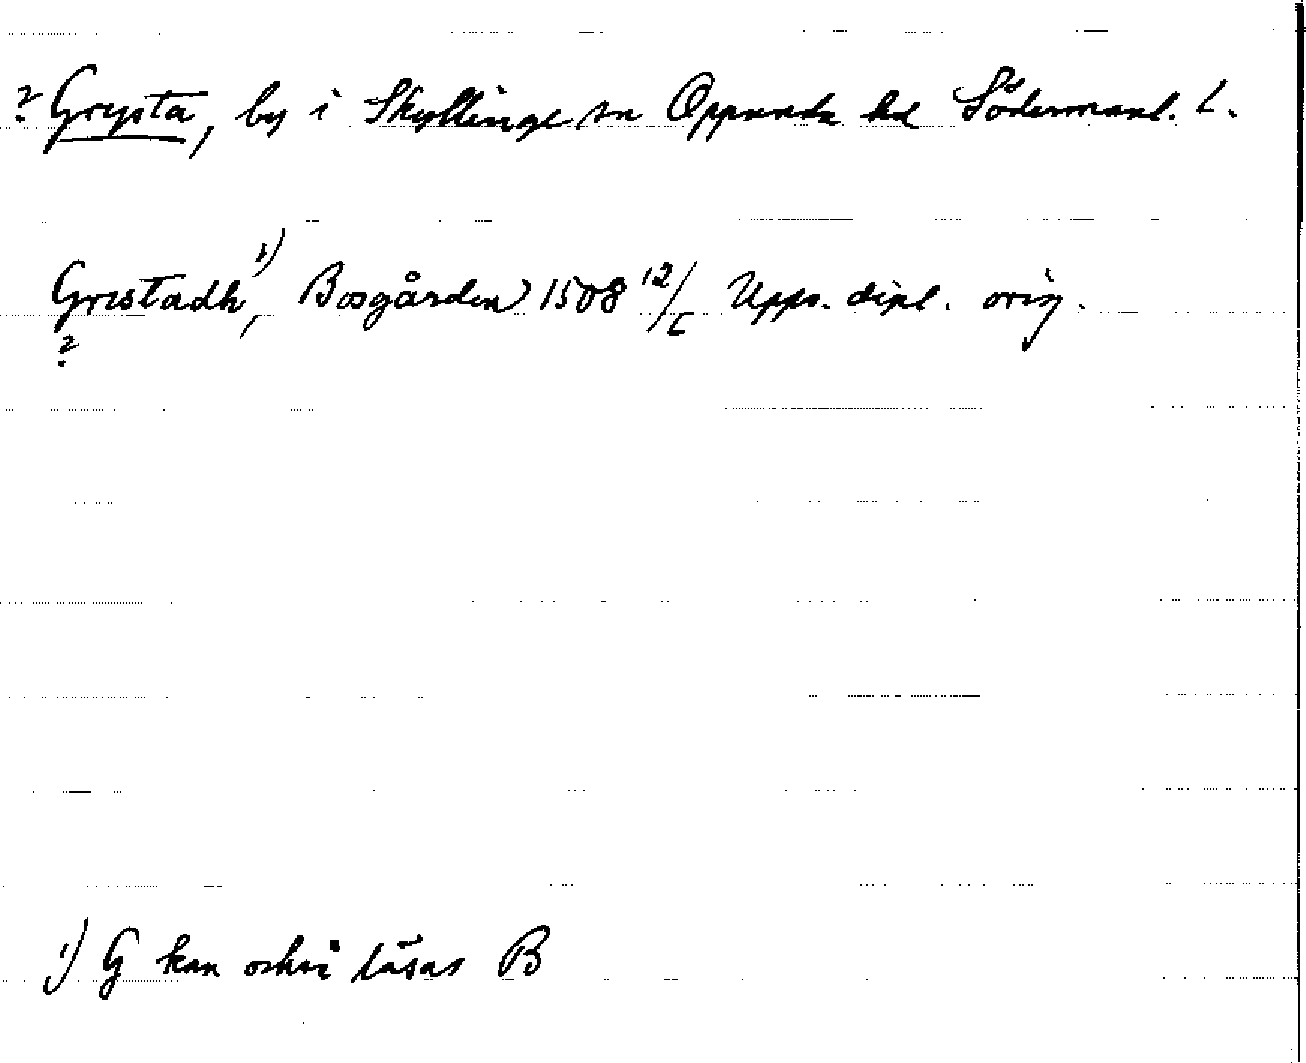 ? Grysta, by i Skyllinge sn Oppunda hd Södermanl. L.
Grestadh, 1) Bosgården) 1508 12/6 Upps. dipl. orig.
?
1) G kan också läsas B